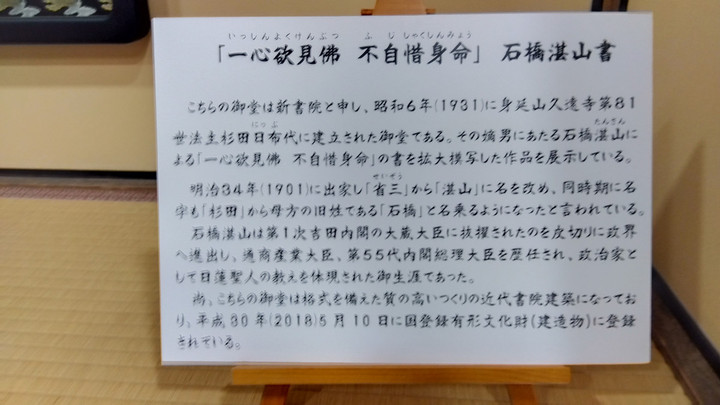 いっしんよくけんぶつ　ふじしゃくしんみょう
「一心欲見佛　不自惜身命」　石橋湛山書
こちらの御堂は新書院と申し、昭和6年(1931)に身延山久遠寺第81
にっぷ　たんざん
世法主杉田日布代に建立された御堂である。その嫡男にあたる石橋湛山に
よる「一心欲見佛　不自惜身命」の書を拡大模写した作品を展示している。
せいぞう
明治34年(1901)に出家し「省三」から「湛山」に名を改め、同時期に名
字も「杉田」から母方の旧姓である「石橋」と名乗るようになったと言われている。
石橋湛山は第1次吉田内閣の大蔵大臣に抜擢されたのを皮切りに政界
へ進出し、通商産業大臣、第55代内閣総理大臣を歴任され、政治家と
して日蓮聖人の教えを体現された御生涯であった。
尚、こちらの御堂は格式を備えた質の高いつくりの近代書院建築になってお
り、平成30年(2018)5月10日に国登録有形文化財(建造物)に登録
されている。